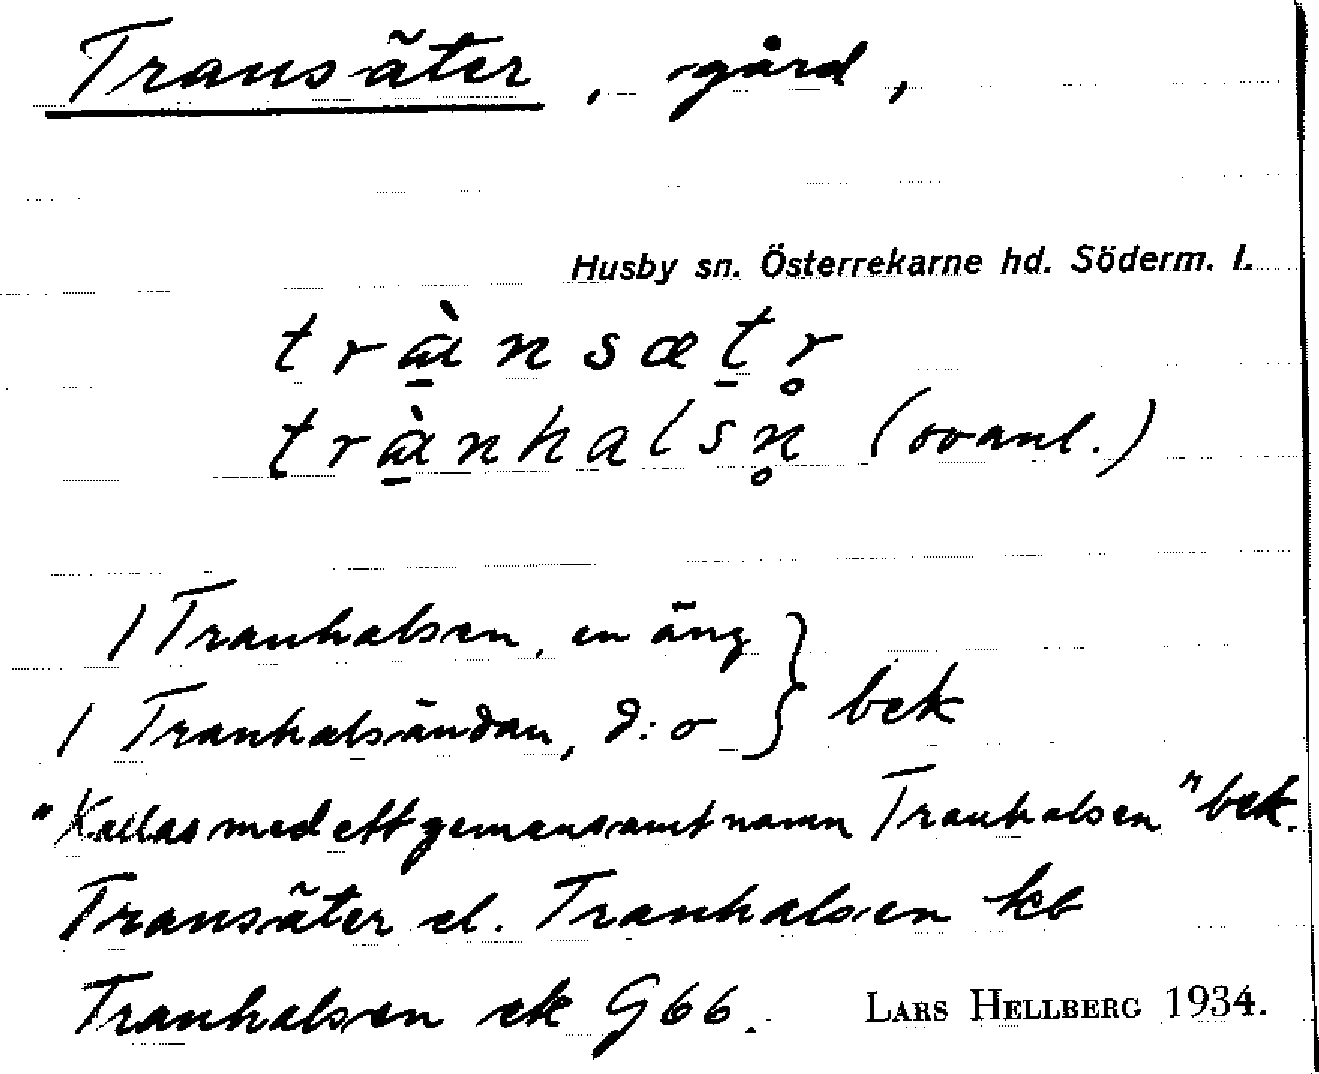 Transäter, gård,
Husby sn. Österrekarne hd. Söderm. l.
trànsætr̥
trànhalsn̥ (ovanl.)
/ Tranhalsen, en äng } bek
/ Tranhalsändan, d:o
"Kallas med ett gemensamt namn Tranhalsen" bek.
Transäter el. Tranhalsen kb
Tranhalsen ek G66.
LARS HELLBERG 1934.